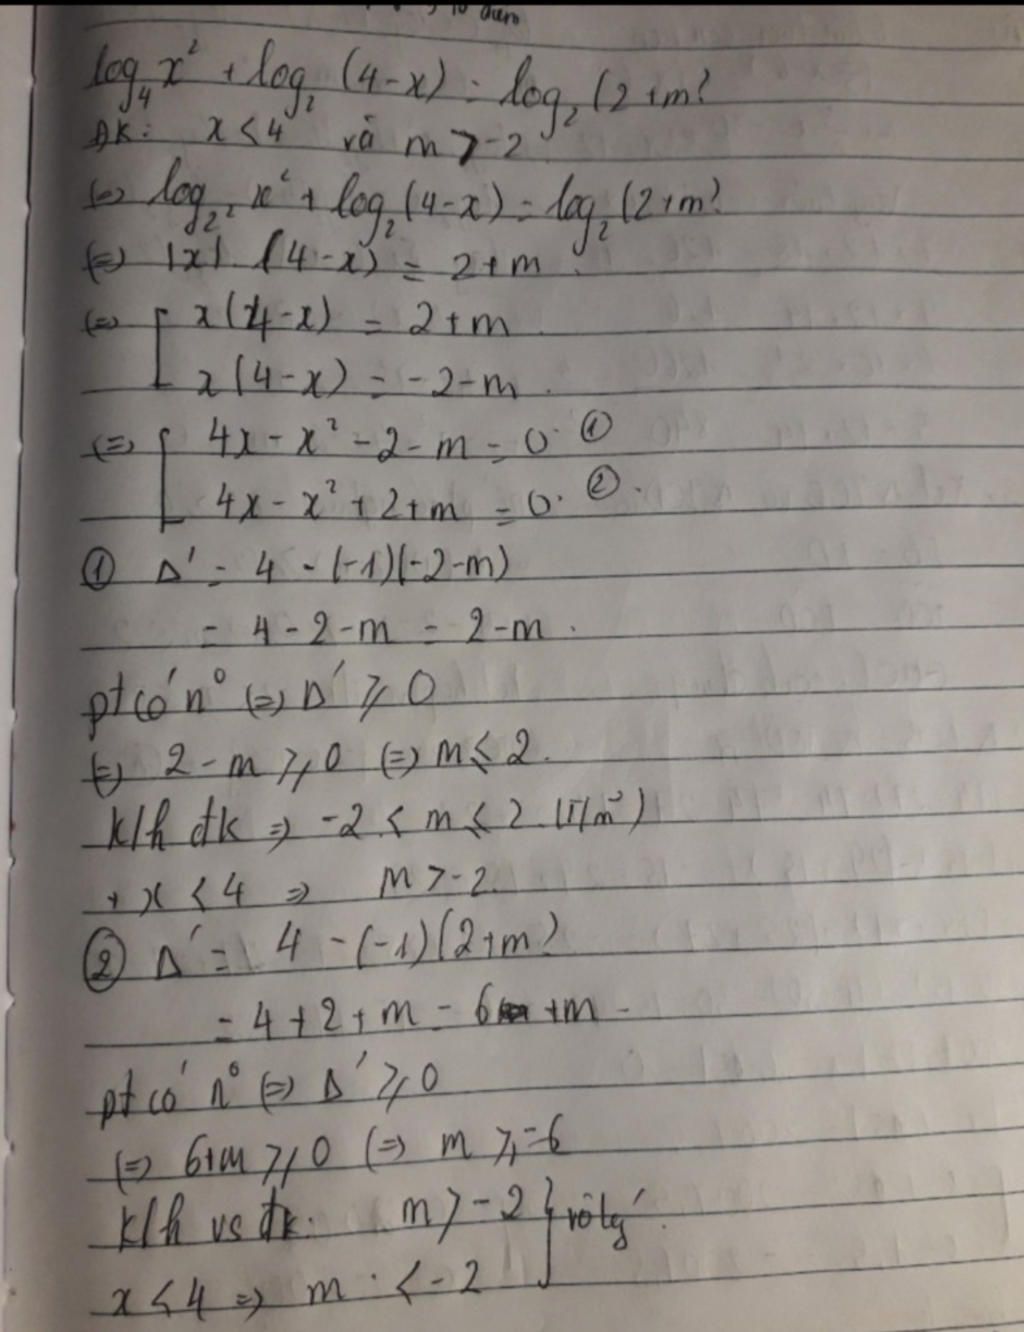 log₄ x² + log₂ (4-x) = log₂ (2+m)
ĐK: x < 4 và m > -2
(=) log_{2²} x² + log₂ (4-x) = log₂ (2+m)
(=) |x| (4-x) = 2+m.
(=) [ x(4-x) = 2+m
x(4-x) = -2-m.
(=) [ 4x - x² - 2 - m = 0. ①
4x - x² + 2 + m = 0. ②.
① Δ' = 4 - (-1)(-2-m)
= 4 - 2 - m = 2-m.
pt có n⁰ (=) Δ' ⩾ 0
(=) 2 - m ⩾ 0 (=) m ⩽ 2.
k/h đk => -2 < m ⩽ 2 (T/m)
+ x < 4 => m > -2.
② Δ' = 4 - (-1)(2+m)
= 4 + 2 + m = 6 + m
pt có n⁰ (=) Δ' ⩾ 0
(=) 6+m ⩾ 0 (=) m ⩾ -6
k/h vs đk: m > -2 } vô lý.
x < 4 => m < -2